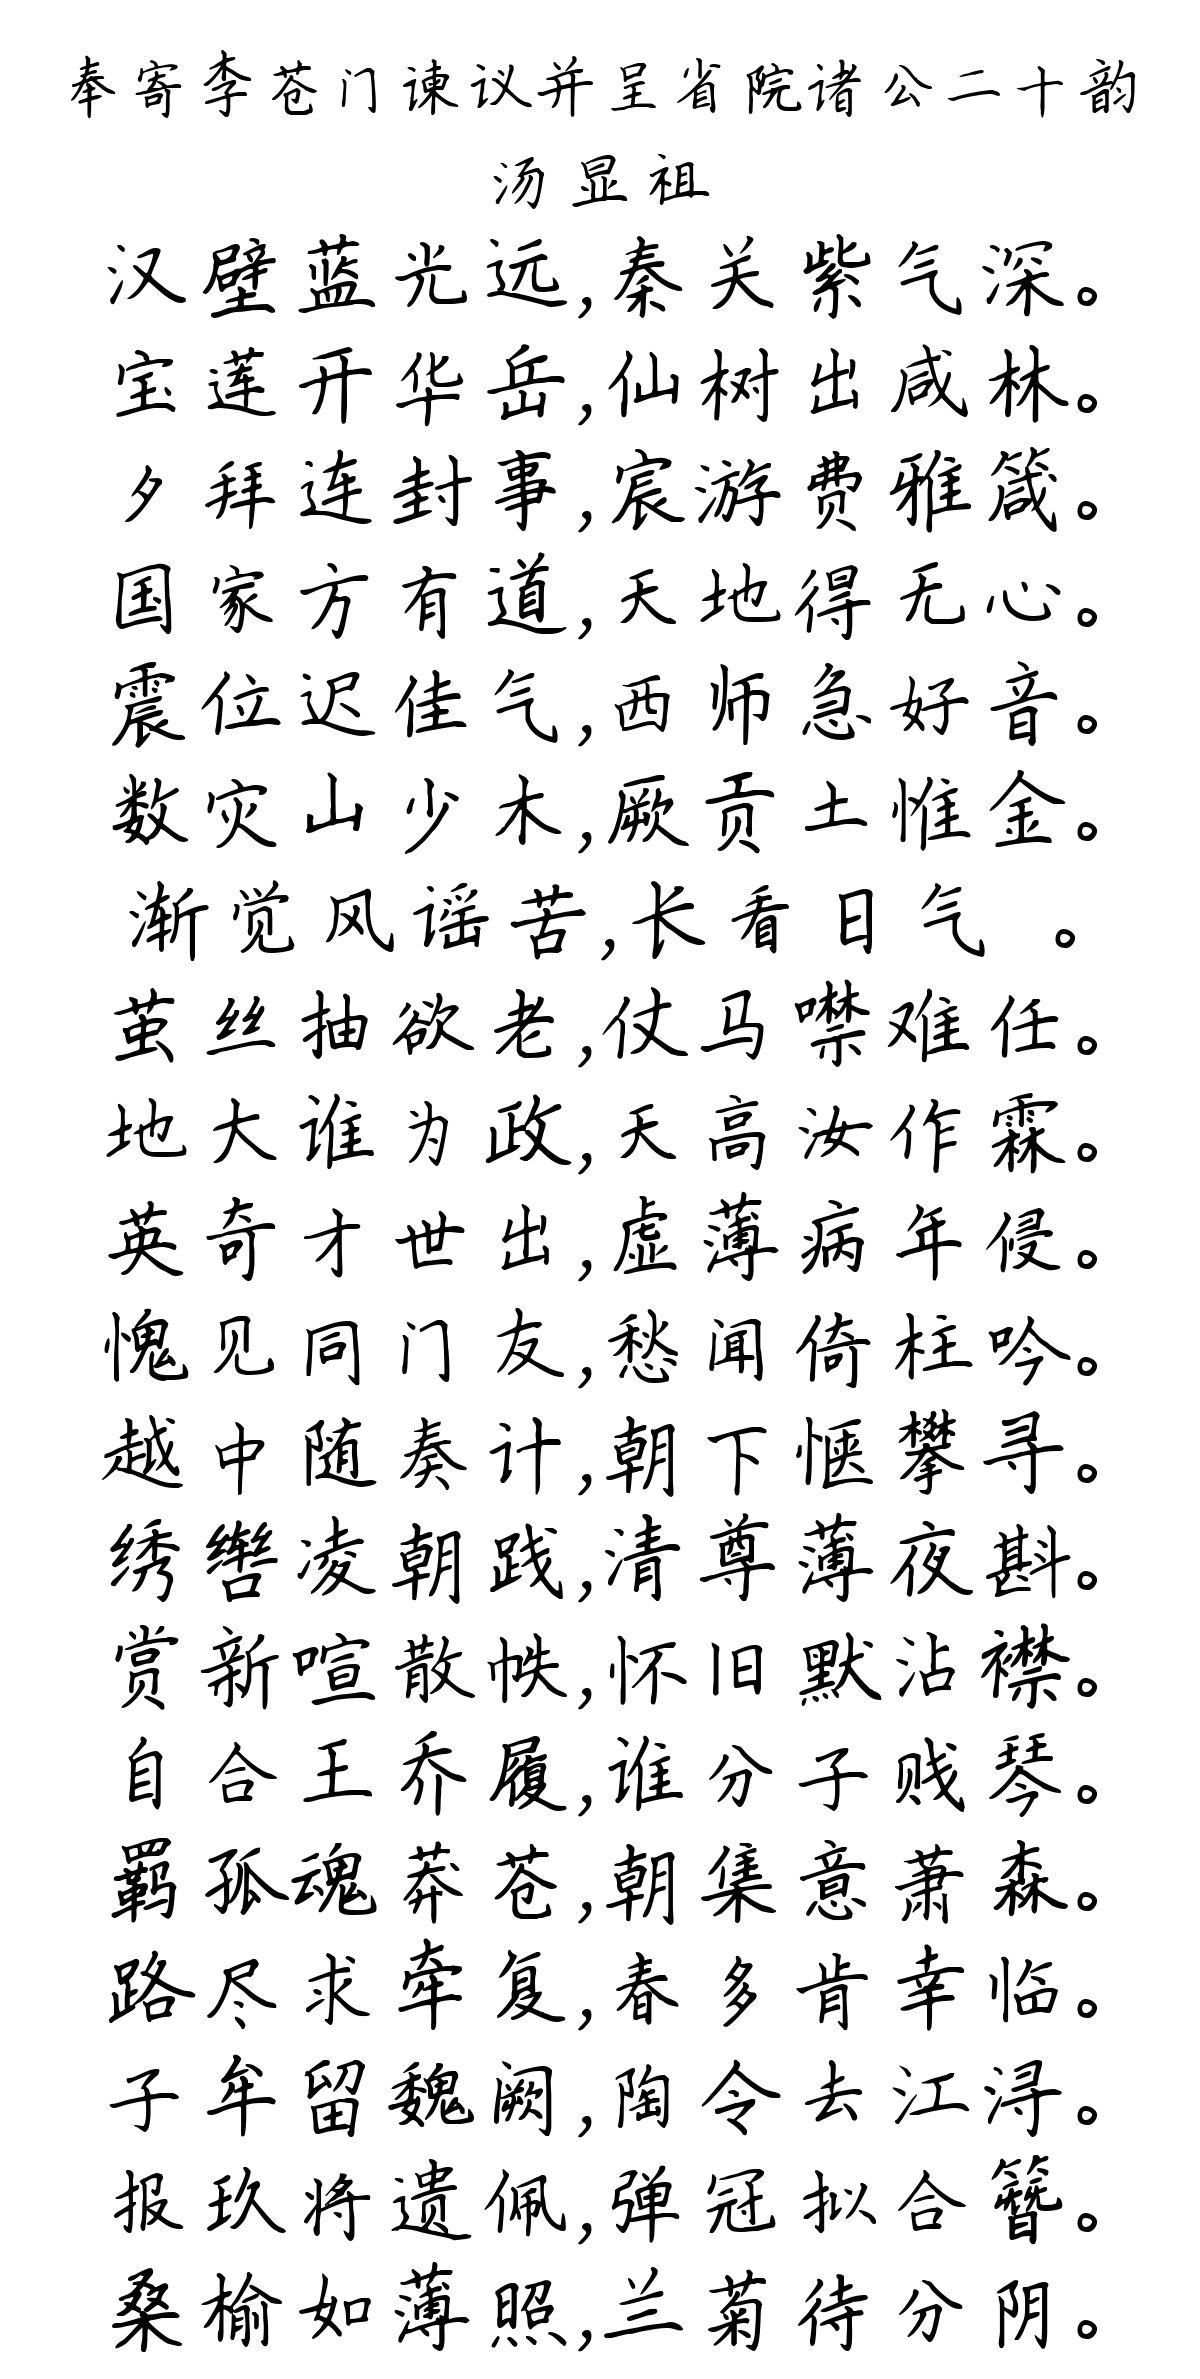 奉寄李苍门谏议并呈省院诸公二十韵
汤显祖
汉壁蓝光远,秦关紫气深。
宝莲开华岳,仙树出咸林。
夕拜连封事,宸游费雅箴。
国家方有道,天地得无心。
震位迟佳气,西师急好音。
数灾山少木,厥贡土惟金。
渐觉风谣苦,长看日气 。
茧丝抽欲老,仗马噤难任。
地大谁为政,天高汝作霖。
英奇才世出,虚薄病年侵。
愧见同门友,愁闻倚柱吟。
越中随奏计,朝下惬攀寻。
绣辔凌朝践,清尊薄夜斟。
赏新喧散帙,怀旧默沾襟。
自合王乔履,谁分子贱琴。
羁孤魂莽苍,朝集意萧森。
路尽求牵复,春多肯幸临。
子牟留魏阙,陶令去江浔。
报玖将遗佩,弹冠拟合簪。
桑榆如薄照,兰菊待分阴。